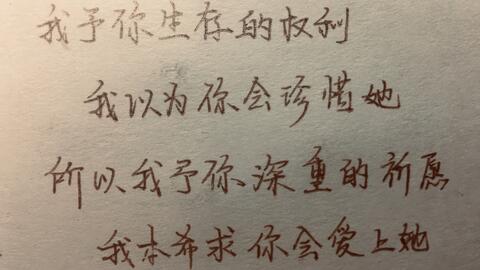 我予你生存的权利
我以为你会珍惜她
所以我予你深重的祈愿
我本希求你会爱上她